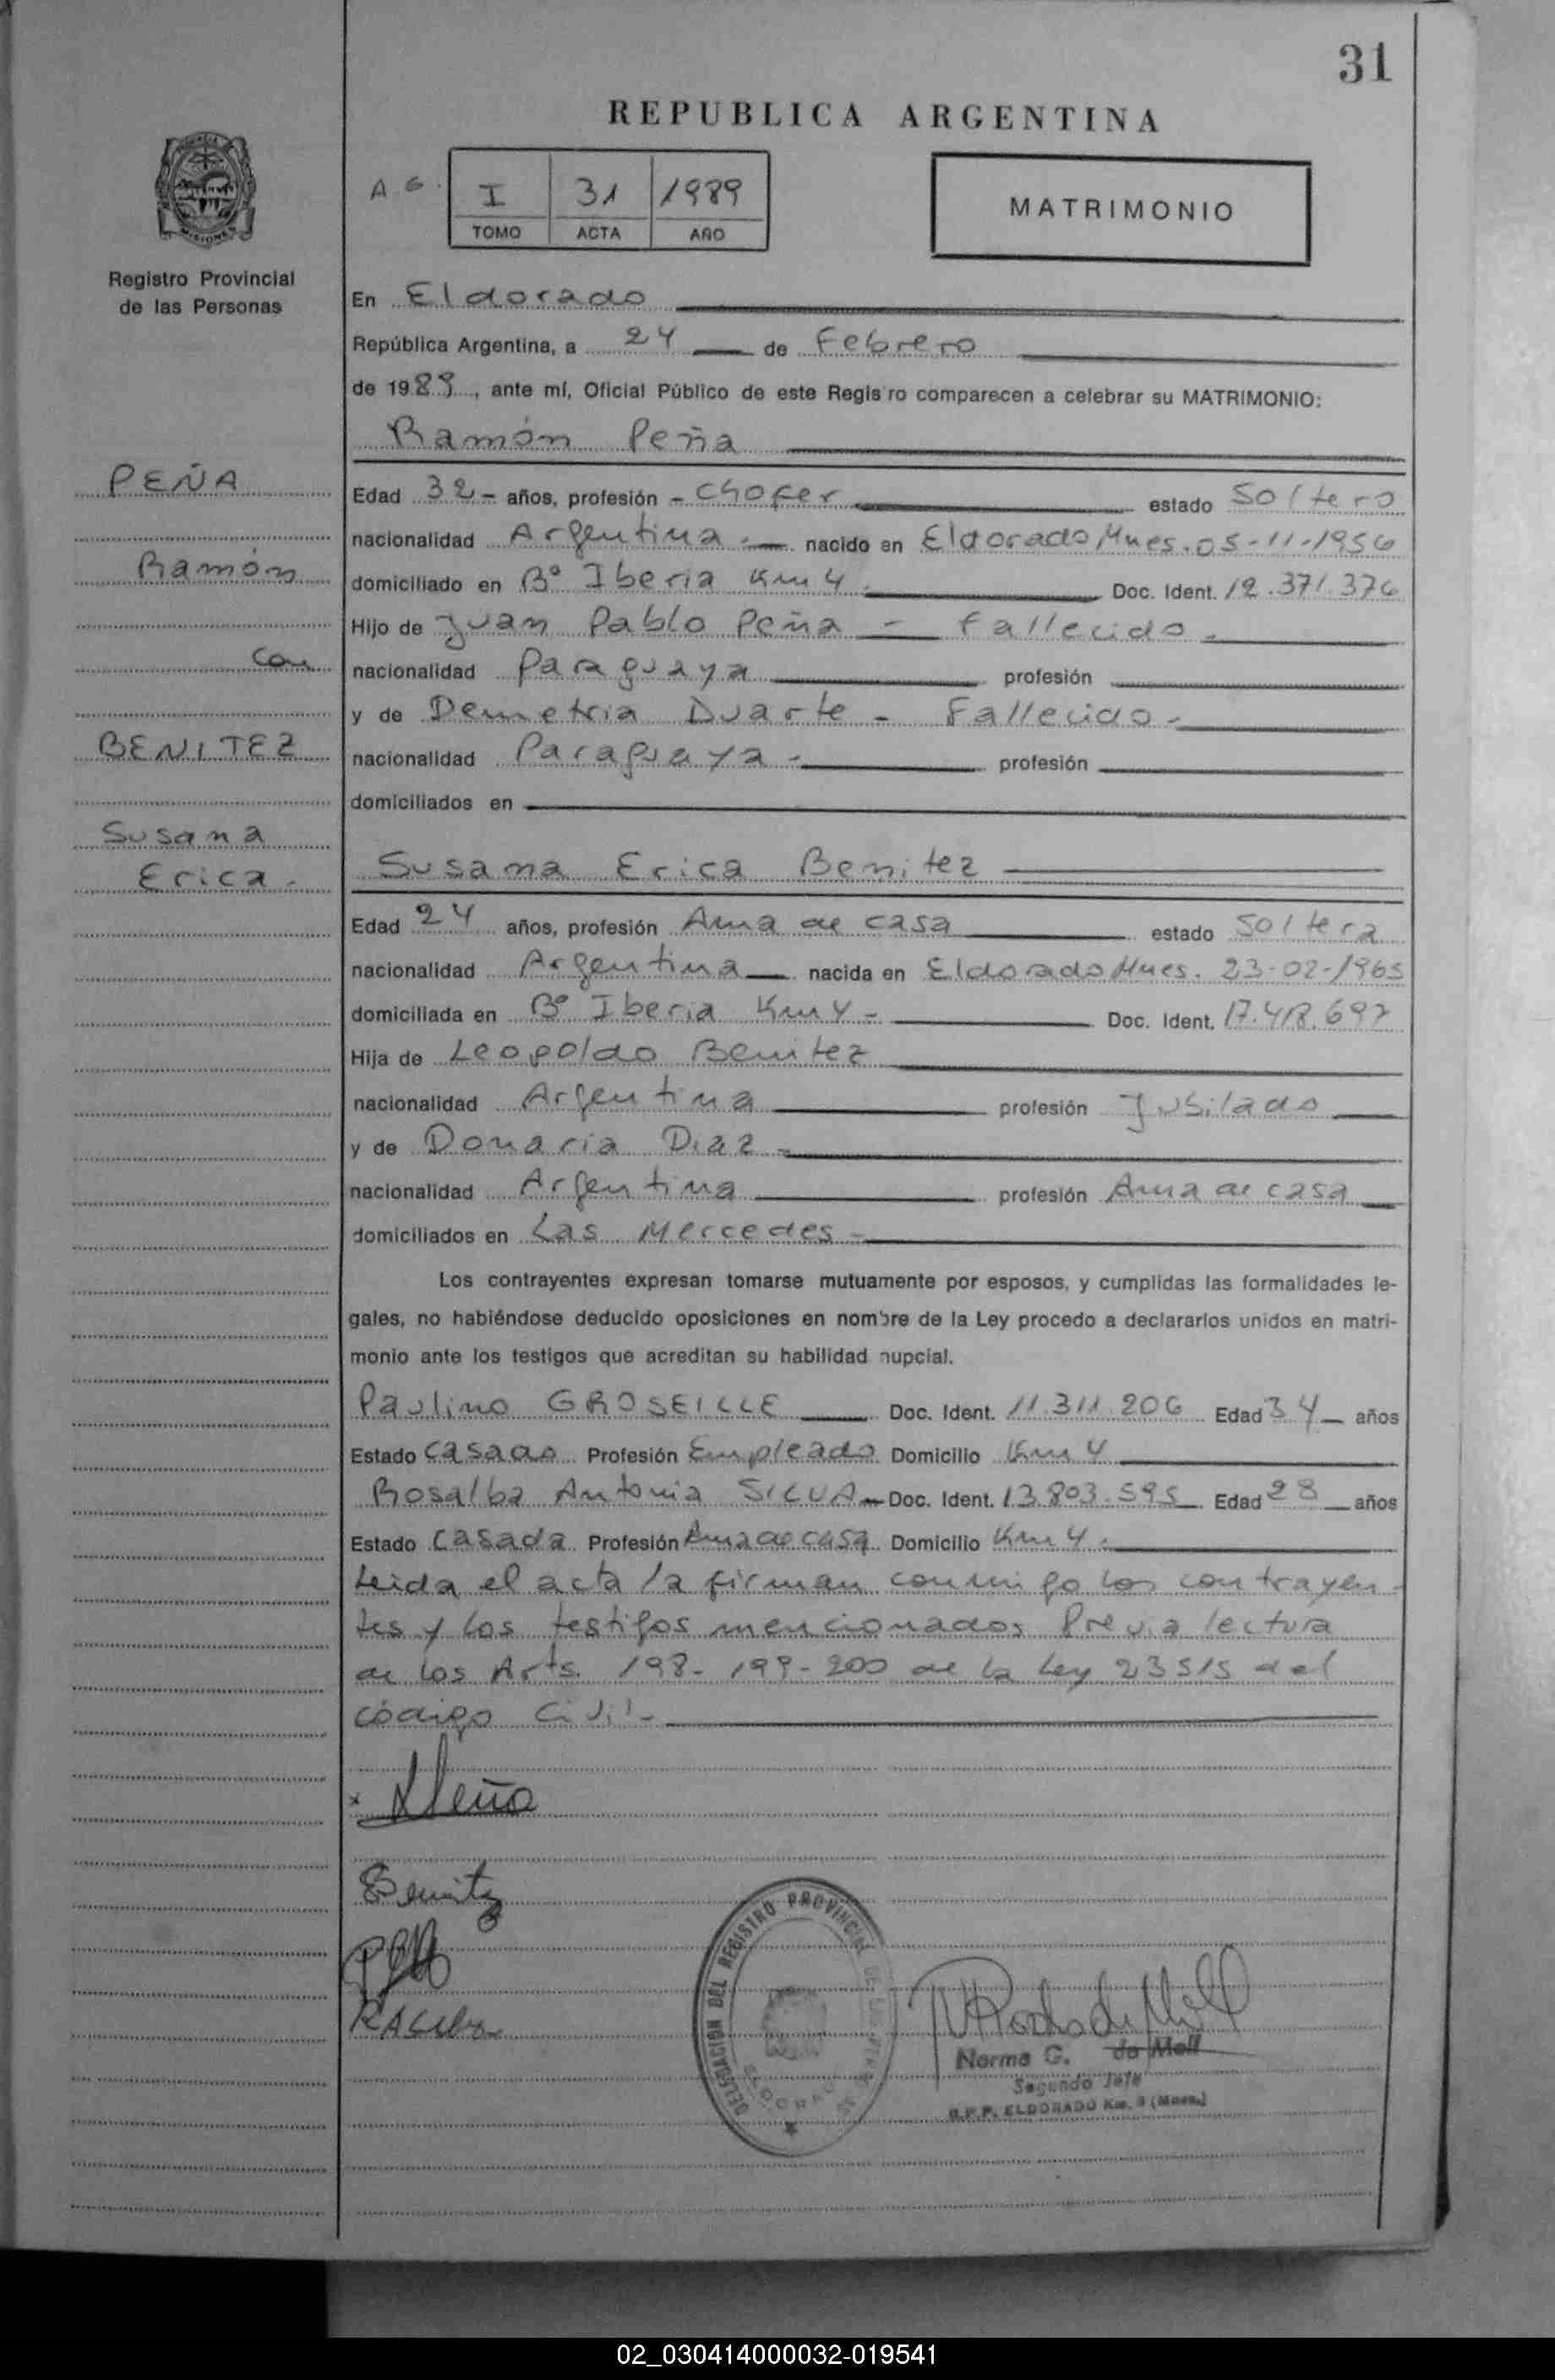 31
REPUBLICA ARGENTINA
MISIONES
Registro Provincial
de las Personas
I 31 1989
TOMO ACTA AÑO
MATRIMONIO
En Eldorado
República Argentina, a 24 de Febrero
de 1989, ante mí, Oficial Público de este Regis ro comparecen a celebrar su MATRIMONIO:
Ramón Peña
PEÑA
Ramón
con
BENITEZ
Susana
Erica.
Edad 32 - años, profesión - chofer estado Soltero
nacionalidad Argentina.- nacido en Eldorado Mnes. 05-11-1956
domiciliado en Bº Iberia Km 4. Doc. Ident. 12.371.376
Hijo de Juan Pablo Peña - Fallecido.
nacionalidad Paraguaya profesión
y de Demetria Duarte - Fallecido-
nacionalidad Paraguaya - profesión
domiciliados en
Susana Erica Benitez
Edad 24 años, profesión Ama de casa estado Soltera
nacionalidad Argentina nacida en Eldorado Mnes. 23-02-1965
domiciliada en Bº Iberia Km 4 - Doc. Ident. 17.418.697
Hija de Leopoldo Benitez
nacionalidad Argentina profesión Jubilado
y de Donaria Diaz -
nacionalidad Argentina profesión Ama de casa
domiciliados en Las Mercedes -
Los contrayentes expresan tomarse mutuamente por esposos, y cumplidas las formalidades le-
gales, no habiéndose deducido oposiciones en nombre de la Ley procedo a declararlos unidos en matri-
monio ante los testigos que acreditan su habilidad nupcial.
Paulino GROSEILLE Doc. Ident. 11.311.206 Edad 34 años
Estado casado Profesión Empleado Domicilio Km 4
Rosalba Antonia SILVA Doc. Ident. 13.803.595 Edad 28 años
Estado Casada Profesión Ama de casa Domicilio Km 4.
Leida el acta la firman conmigo los contrayen-
tes y los testigos mencionados Previa lectura
de los Arts. 198-199-200 de la Ley 23515 del
código Civil-
Peña
Benitez
DELEGACION DEL REGISTRO PROVINCIAL DE LAS PERSONAS
ELDORADO
Norma G. de Moll
Segundo Jefe
R.P.P. ELDORADO Km.
02_030414000032-019541